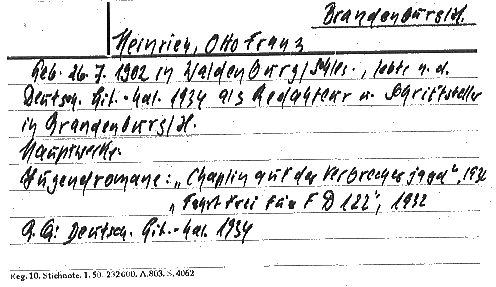 Brandenburg/H.
Heinrich, Otto Franz
Geb. 26.7.1902 in Waldenburg/Schles., lebte n. d.
Deutsch. Lit.-Kal. 1934 als Redakteur u. Schriftsteller
in Brandenburg/H.
Hauptwerke:
Jugendromane: „Chaplin auf der Verbrecherjagd“, 1932
„Fahrt frei für F D 122“, 1932
Q.: Deutsch. Lit.-Kal. 1934
Reg. 10. Stichnote. 1. 50. 232600. A.803. S. 4062